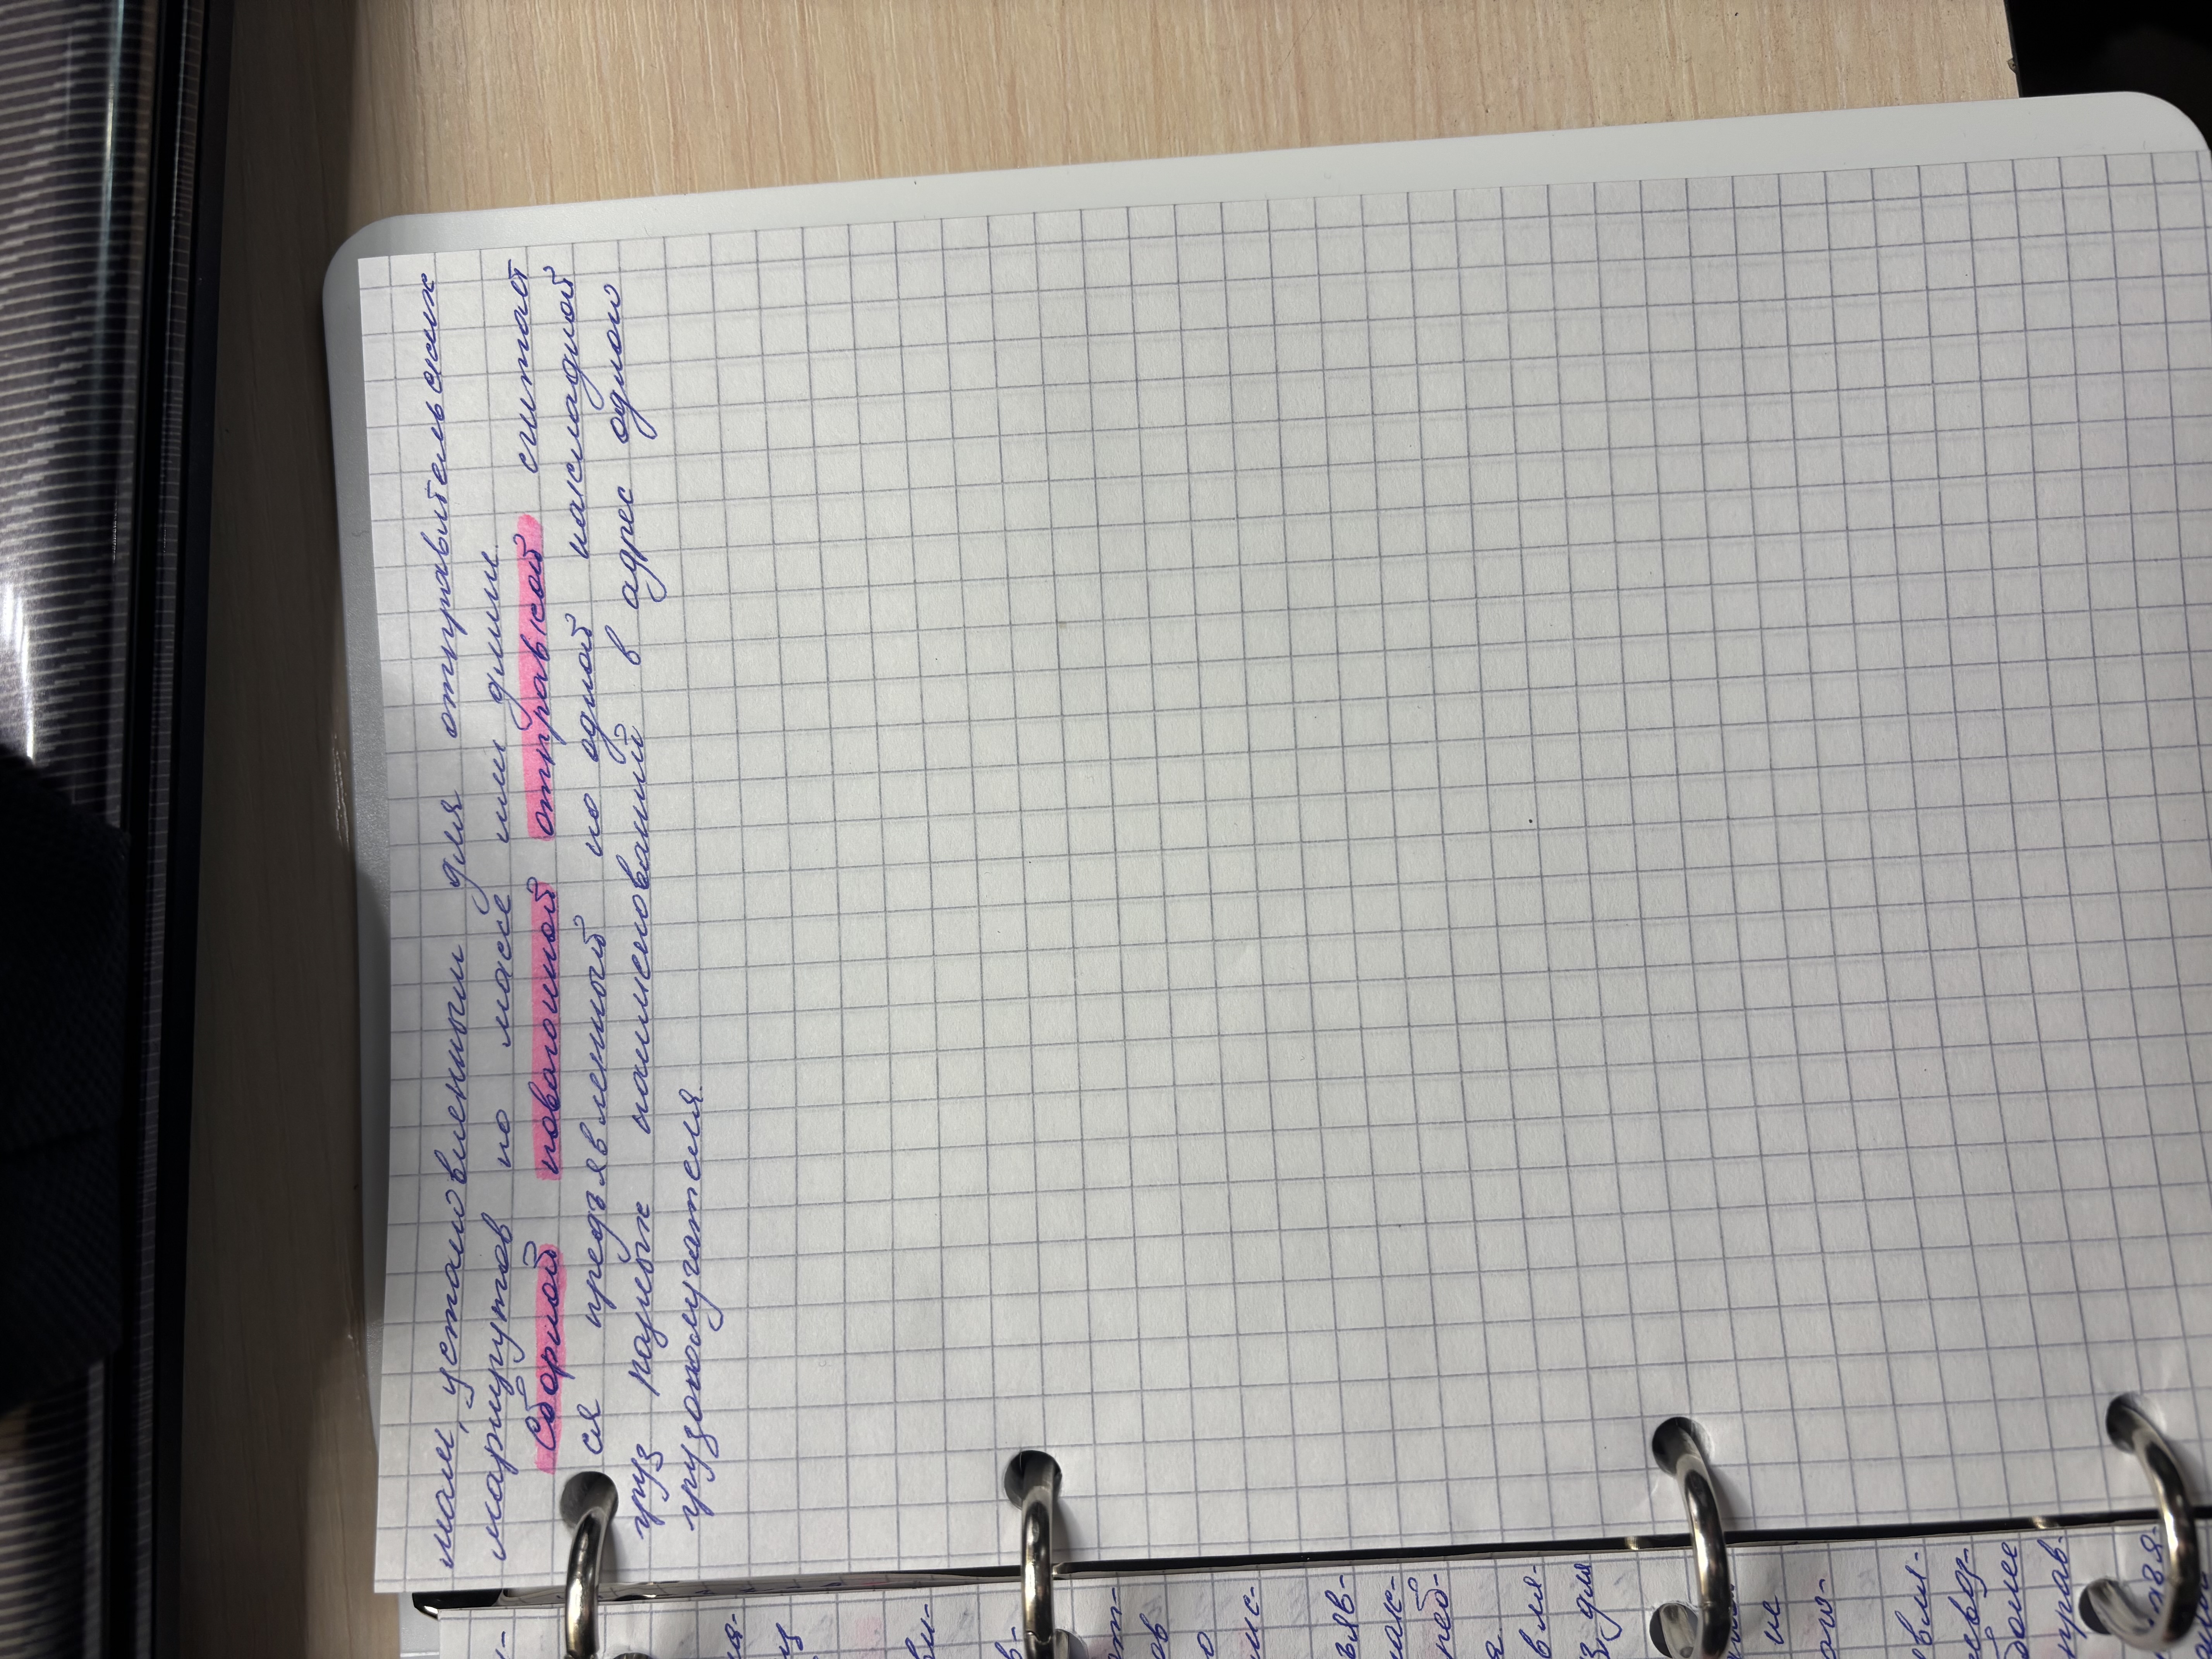 мам, установленным для отправительских
маршрутов по массе или длине.
Сборной повагонной отправкой считает
ся предъявленный по одной накладной
груз разных наименований в адрес одного
грузополучателя.